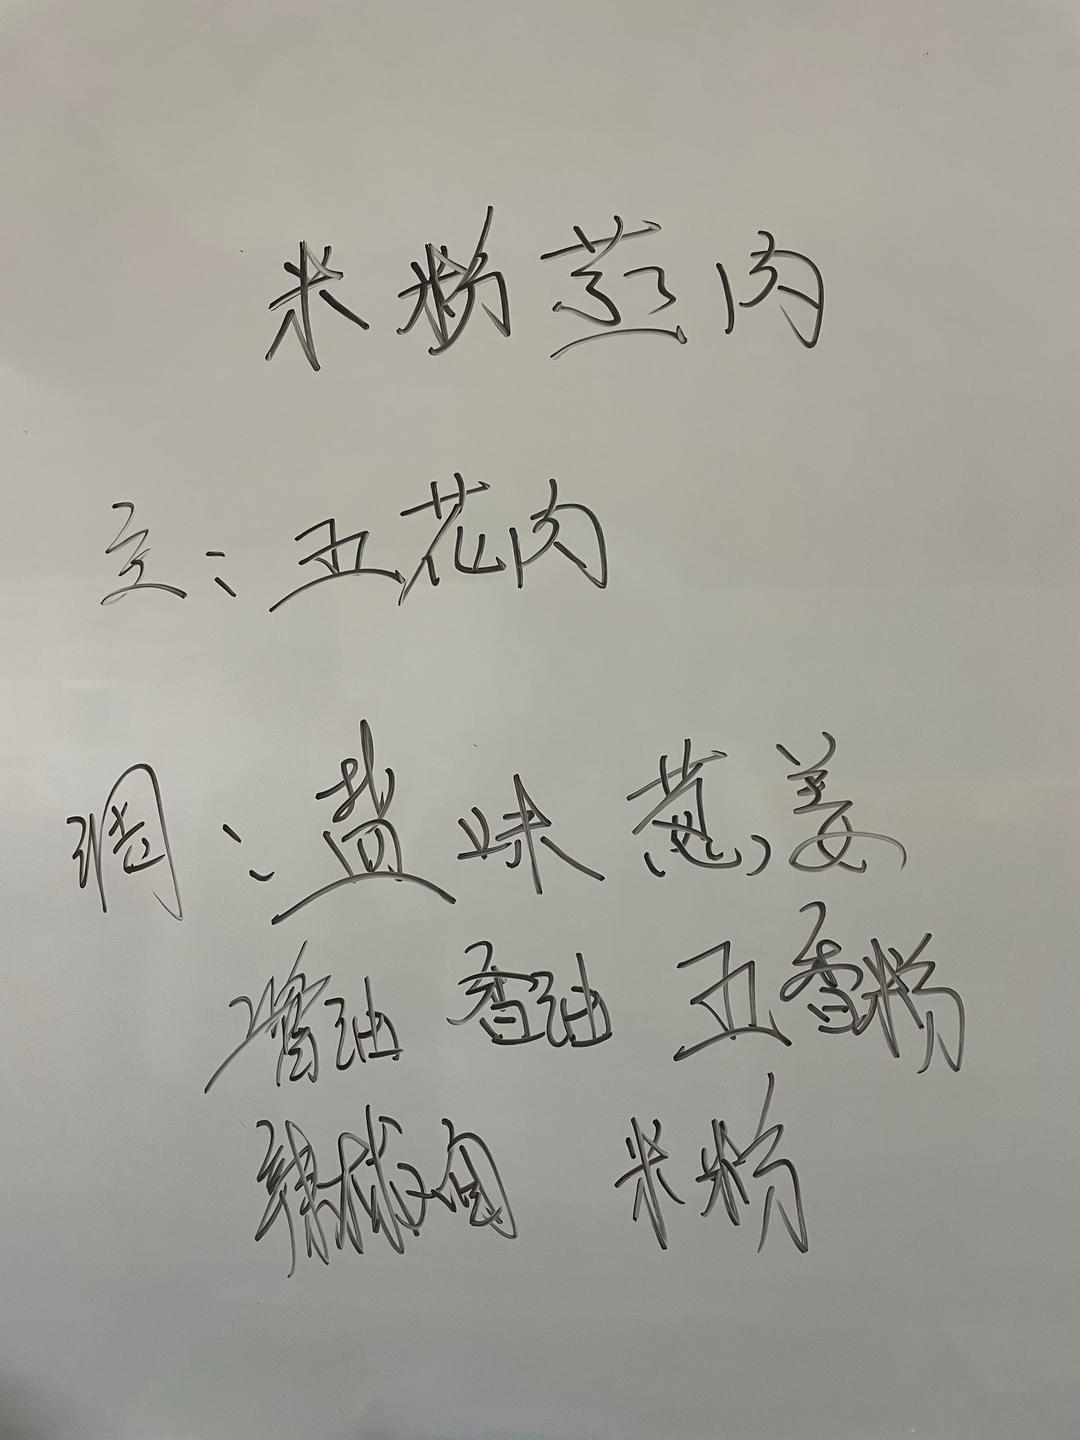 米粉蒸肉
主：五花肉
调：盐 味 葱，姜
酱油 香油 五香粉
辣椒面 米粉